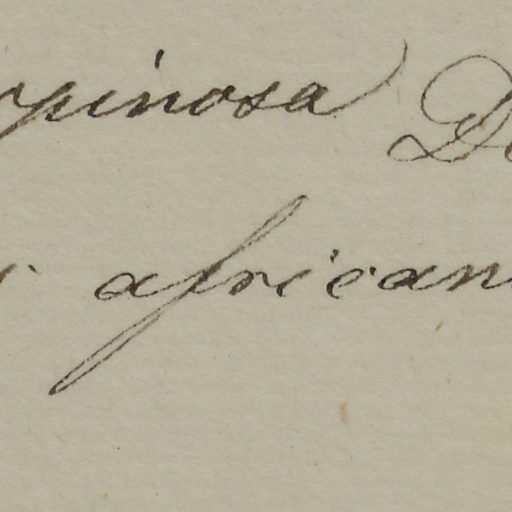 spinosa D
african